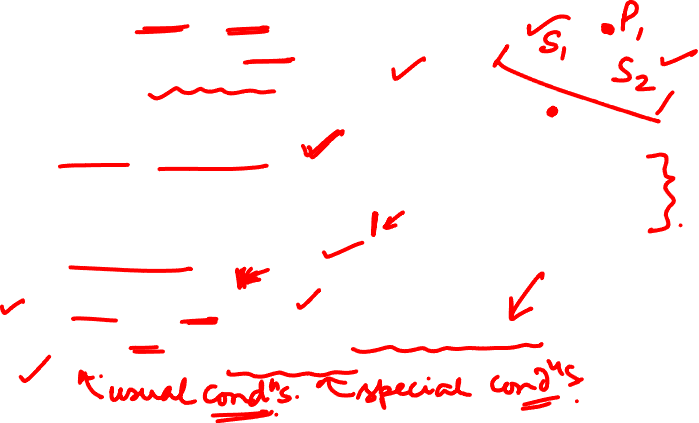 P1
S1
S2
usual condⁿs. special condⁿs